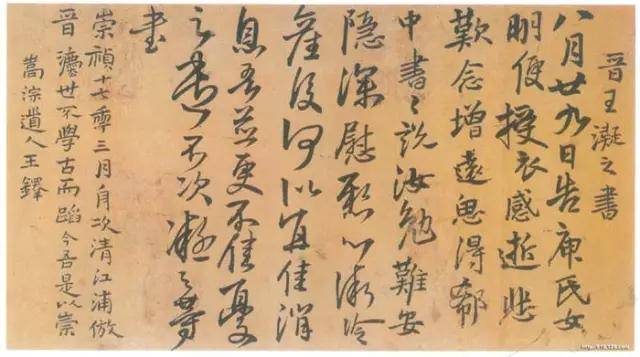 晉王凝之書
八月廿九日告庾氏女
明便授衣感逝悲
歎念增遠思得郗
中書〻說汝勉難安
隱深慰懸心漸冷
產後何以宜佳消
息吾並更不佳憂
之遣書不次凝之等
書
崇禎十七季三月舟次清江浦倣
晉灋世不學古而蹈今吾是以崇
嵩淙遺人王鐸